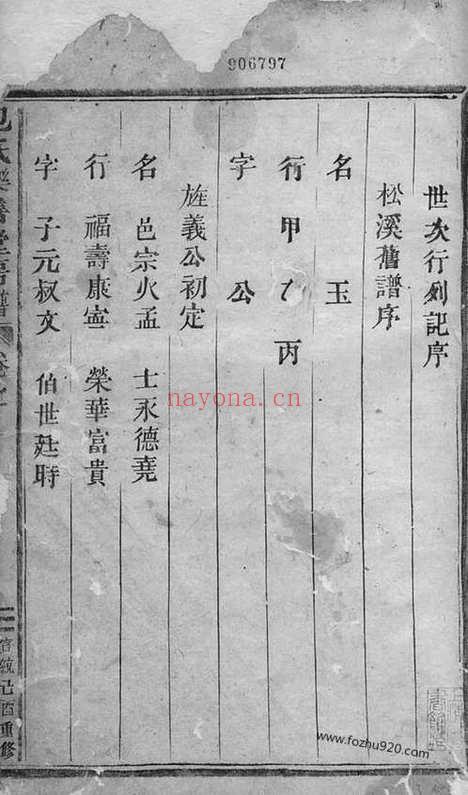 906797
世次行列記序
松溪舊譜序
名 玉
行 甲乙丙
字 公
旌義公初定
名 邑宗火孟 士永德堯
行 福壽康寧 榮華富貴
字 子元叔文 伯世廷時
宣統己酉重修
nayona.cn
www.fozhu920.com